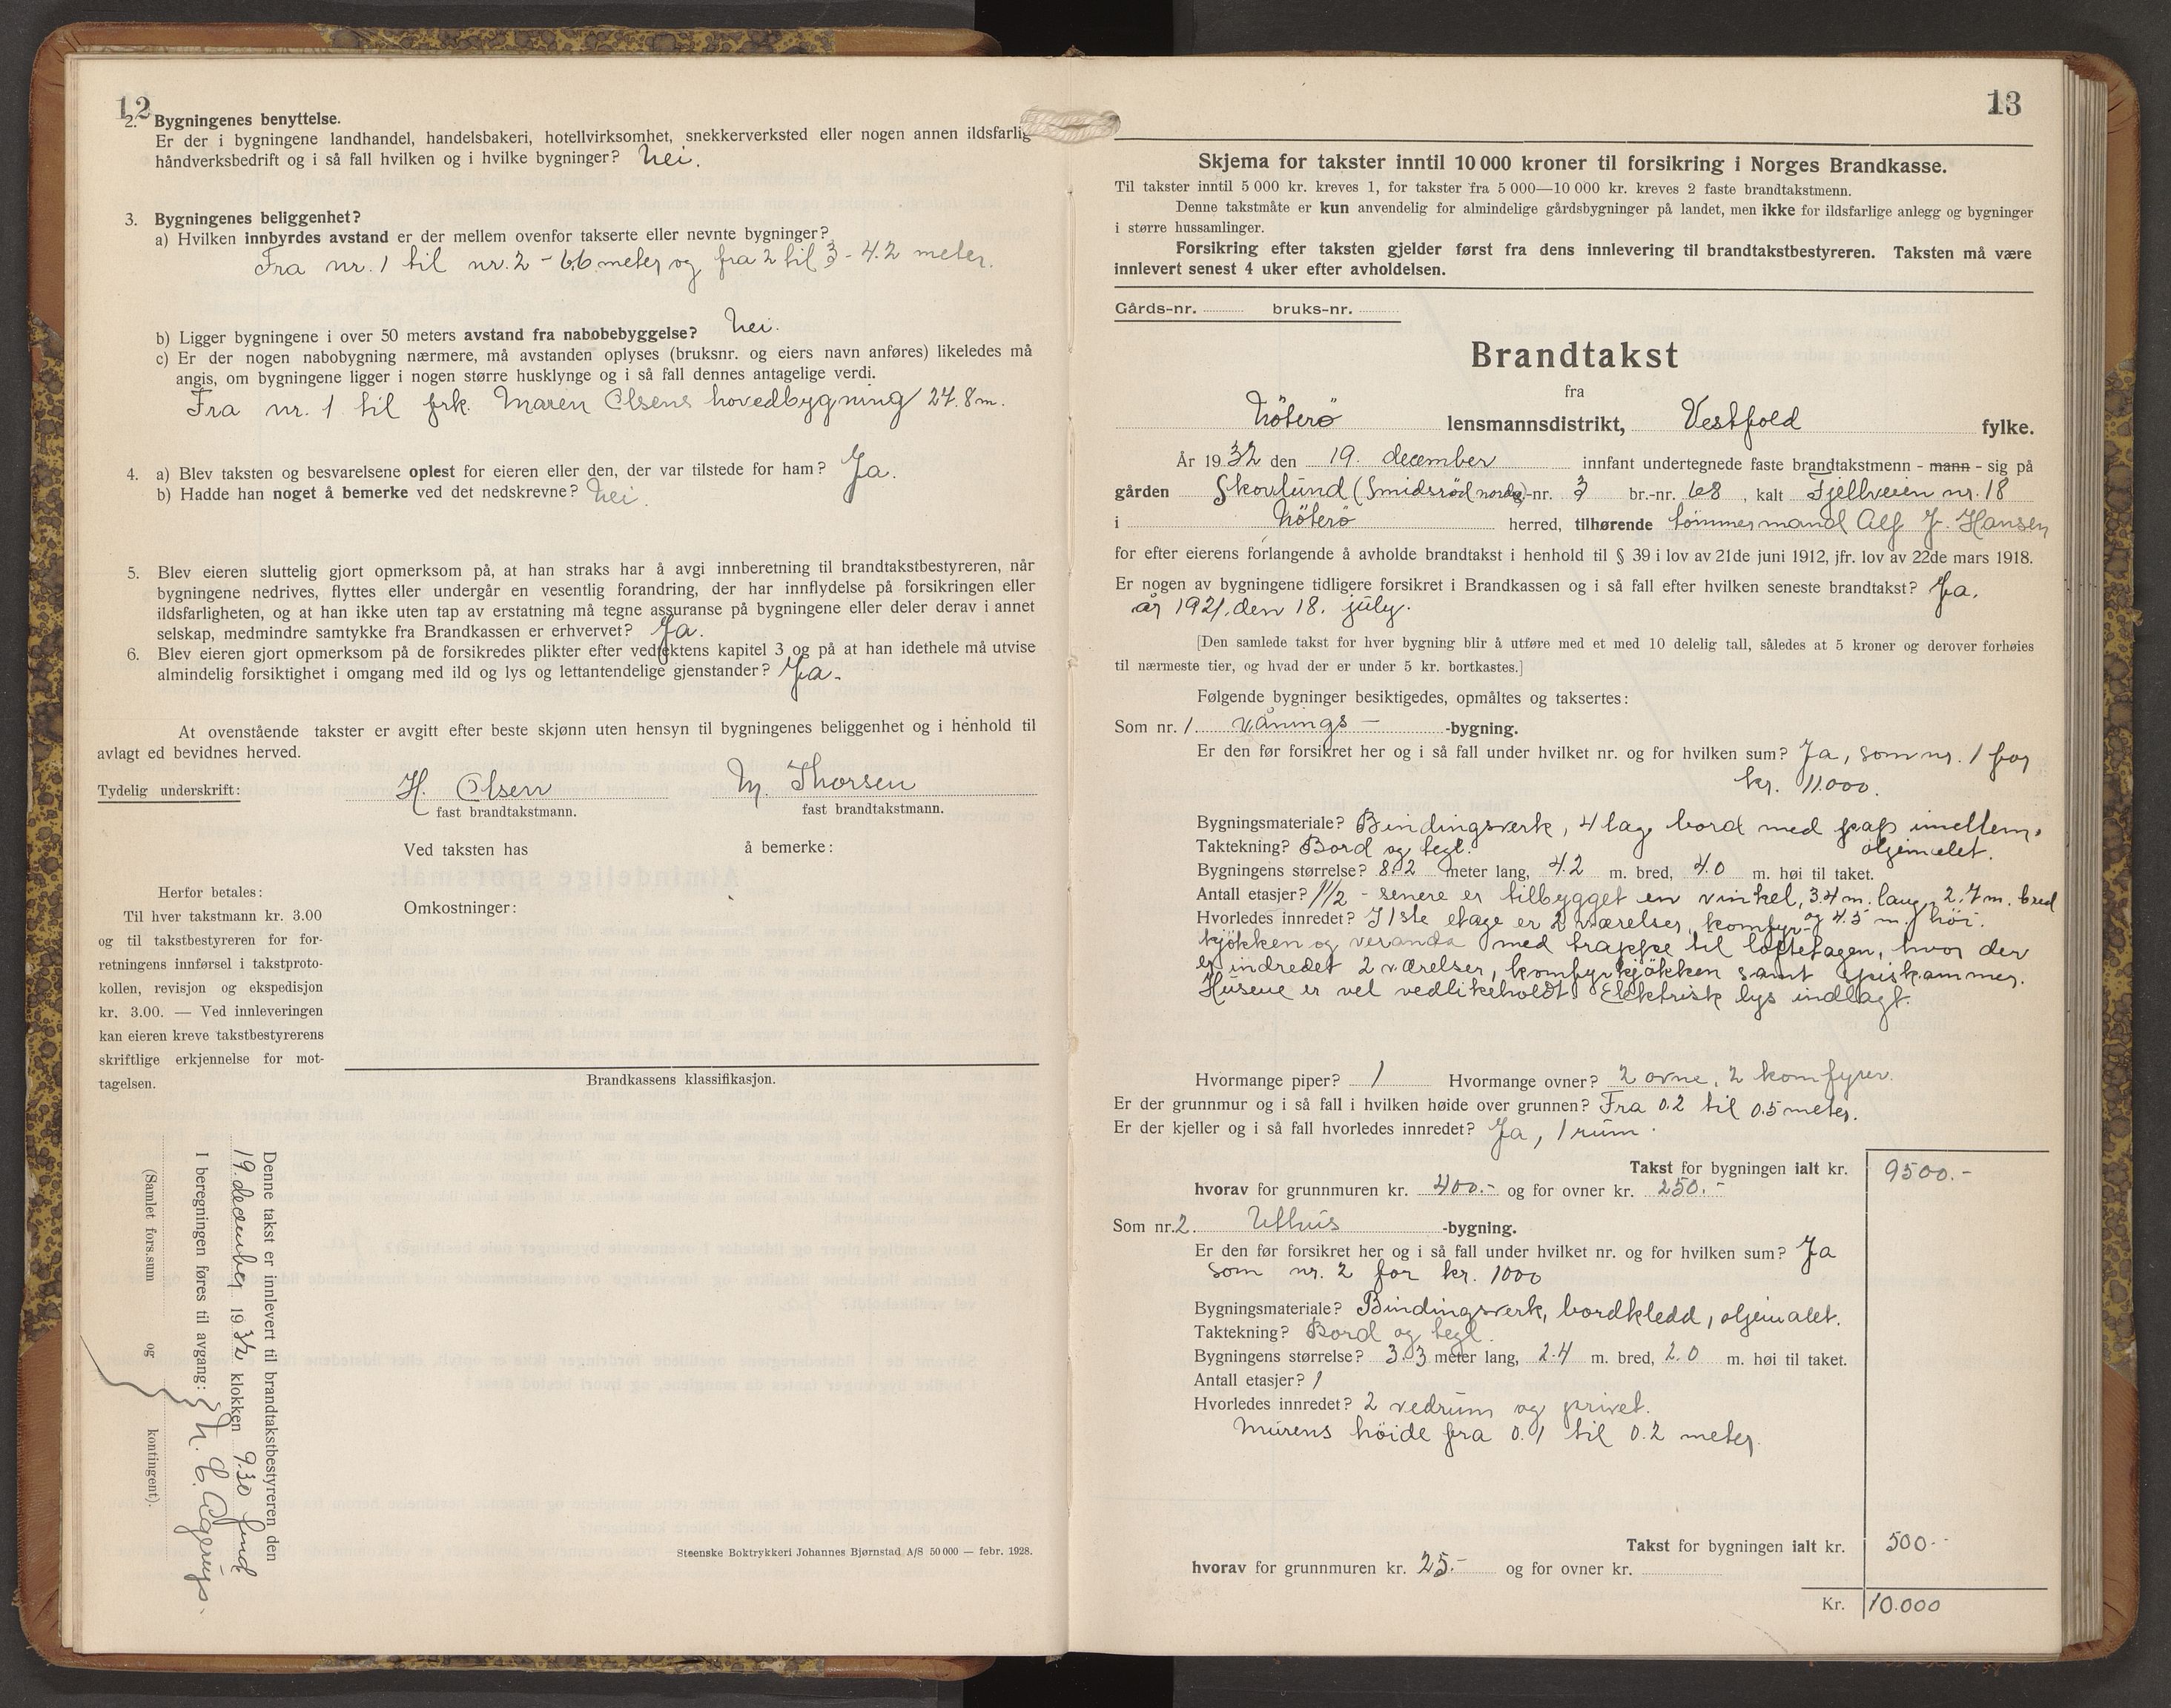 12
2. Bygningenes benyttelse.
Er der i bygningene landhandel, handelsbakeri, hotellvirksomhet, snekkerverksted eller nogen annen ildsfarlig
håndverksbedrift og i så fall hvilken og i hvilke bygninger? Nei.
3. Bygningenes beliggenhet?
a) Hvilken innbyrdes avstand er der mellem ovenfor takserte eller nevnte bygninger?
Fra nr. 1 til nr. 2 - 6.6 meter og fra 2 til 3 - 4.2 meter.
b) Ligger bygningene i over 50 meters avstand fra nabobebyggelse? Nei.
c) Er der nogen nabobygning nærmere, må avstanden oplyses (bruksnr. og eiers navn anføres) likeledes må
angis, om bygningene ligger i nogen større husklynge og i så fall dennes antagelige verdi.
Fra nr. 1 til frk. Maren Olsens hovedbygning 24.8 m.
4. a) Blev taksten og besvarelsene oplest for eieren eller den, der var tilstede for ham? Ja.
b) Hadde han noget å bemerke ved det nedskrevne? Nei.
5. Blev eieren sluttelig gjort opmerksom på, at han straks har å avgi innberetning til brandtakstbestyreren, når
bygningene nedrives, flyttes eller undergår en vesentlig forandring, der har innflydelse på forsikringen eller
ildsfarligheten, og at han ikke uten tap av erstatning må tegne assuranse på bygningene eller deler derav i annet
selskap, medmindre samtykke fra Brandkassen er erhvervet? Ja.
6. Blev eieren gjort opmerksom på de forsikredes plikter efter vedtektens kapitel 3 og på at han idethele må utvise
almindelig forsiktighet i omgang med ild og lys og lettantendelige gjenstander? Ja.
At ovenstående takster er avgitt efter beste skjønn uten hensyn til bygningenes beliggenhet og i henhold til
avlagt ed bevidnes herved.
Tydelig underskrift: H. Olsen M. Thorsen
fast brandtakstmann. fast brandtakstmann.
Ved taksten has å bemerke:
Omkostninger:
Herfor betales:
Til hver takstmann kr. 3.00
og til takstbestyreren for for-
retningens innførsel i takstproto-
kollen, revisjon og ekspedisjon
kr. 3.00. — Ved innleveringen
kan eieren kreve takstbestyrerens
skriftlige erkjennelse for mot-
tagelsen.
Brandkassens klassifikasjon.
Denne takst er innlevert til brandtakstbestyreren den
19. december 1932 klokken 9.30 fmd
I beregningen føres til avgang:
(Samlet fors.sum og kontingent).
Steenske Boktrykkeri Johannes Bjørnstad A/S 50 000 — febr. 1928.
13
Skjema for takster inntil 10 000 kroner til forsikring i Norges Brandkasse.
Til takster inntil 5 000 kr. kreves 1, for takster fra 5 000—10 000 kr. kreves 2 faste brandtakstmenn.
Denne takstmåte er kun anvendelig for almindelige gårdsbygninger på landet, men ikke for ildsfarlige anlegg og bygninger
i større hussamlinger.
Forsikring efter taksten gjelder først fra dens innlevering til brandtakstbestyreren. Taksten må være
innlevert senest 4 uker efter avholdelsen.
Gårds-nr. bruks-nr.
Brandtakst
fra
Nöterö lensmannsdistrikt, Vestfold fylke.
År 1932 den 19. december innfant undertegnede faste brandtakstmenn - mann - sig på
gården Skovlund (Smidsröd nordre)-nr. 3 br.-nr. 68, kalt Fjellveien nr. 18
i Nöterö herred, tilhørende tömmermand Alf J. Hansen
for efter eierens forlangende å avholde brandtakst i henhold til § 39 i lov av 21de juni 1912, jfr. lov av 22de mars 1918.
Er nogen av bygningene tidligere forsikret i Brandkassen og i så fall efter hvilken seneste brandtakst? Ja.
år 1921. den 18. july.
[Den samlede takst for hver bygning blir å utføre med et med 10 delelig tall, således at 5 kroner og derover forhøies
til nærmeste tier, og hvad der er under 5 kr. bortkastes.]
Følgende bygninger besiktigedes, opmåltes og taksertes:
Som nr. 1. vånings- -bygning.
Er den før forsikret her og i så fall under hvilket nr. og for hvilken sum? Ja, som nr. 1 for
kr. 11.000.
Bygningsmateriale? Bindingsverk, 4 lag bord med pap imellem,
Taktekning? Bord og tegl. oljemalet.
Bygningens størrelse? 8.2 meter lang, 4.2 m. bred, 4.0 m. høi til taket.
Antall etasjer? 1 1/2 - senere er tilbygget en vinkel, 3.4 m. lang, 2.7 m. bred
Hvorledes innredet? I 1ste etage er 2 værelser, komfyr- og 4.5 m. höi.
kjökken og veranda med trappe til loftetagen, hvor der
er indredet 2 værelser, komfyrkjökken samt spiskammer.
Husene er vel vedlikeholdt. Elektrisk lys indlagt.
Hvormange piper? 1 Hvormange ovner? 2 ovne, 2 komfyrer.
Er der grunnmur og i så fall i hvilken høide over grunnen? Fra 0.2 til 0.5 meter.
Er der kjeller og i så fall hvorledes innredet? Ja, 1 rum.
Takst for bygningen ialt kr. 9500.-
hvorav for grunnmuren kr. 400.- og for ovner kr. 250.-
Som nr. 2. Uthus -bygning.
Er den før forsikret her og i så fall under hvilket nr. og for hvilken sum? Ja
som nr. 2 for kr. 1000
Bygningsmateriale? Bindingsverk, bordkledd, oljemalet.
Taktekning? Bord og tegl.
Bygningens størrelse? 3.3 meter lang, 2.4 m. bred, 2.0 m. høi til taket.
Antall etasjer? 1
Hvorledes innredet? 2 vedrum og privet.
Murens höide fra 0.1 til 0.2 meter.
Takst for bygningen ialt kr. 500.-
hvorav for grunnmuren kr. 25.- og for ovner kr.
Kr. 10.000